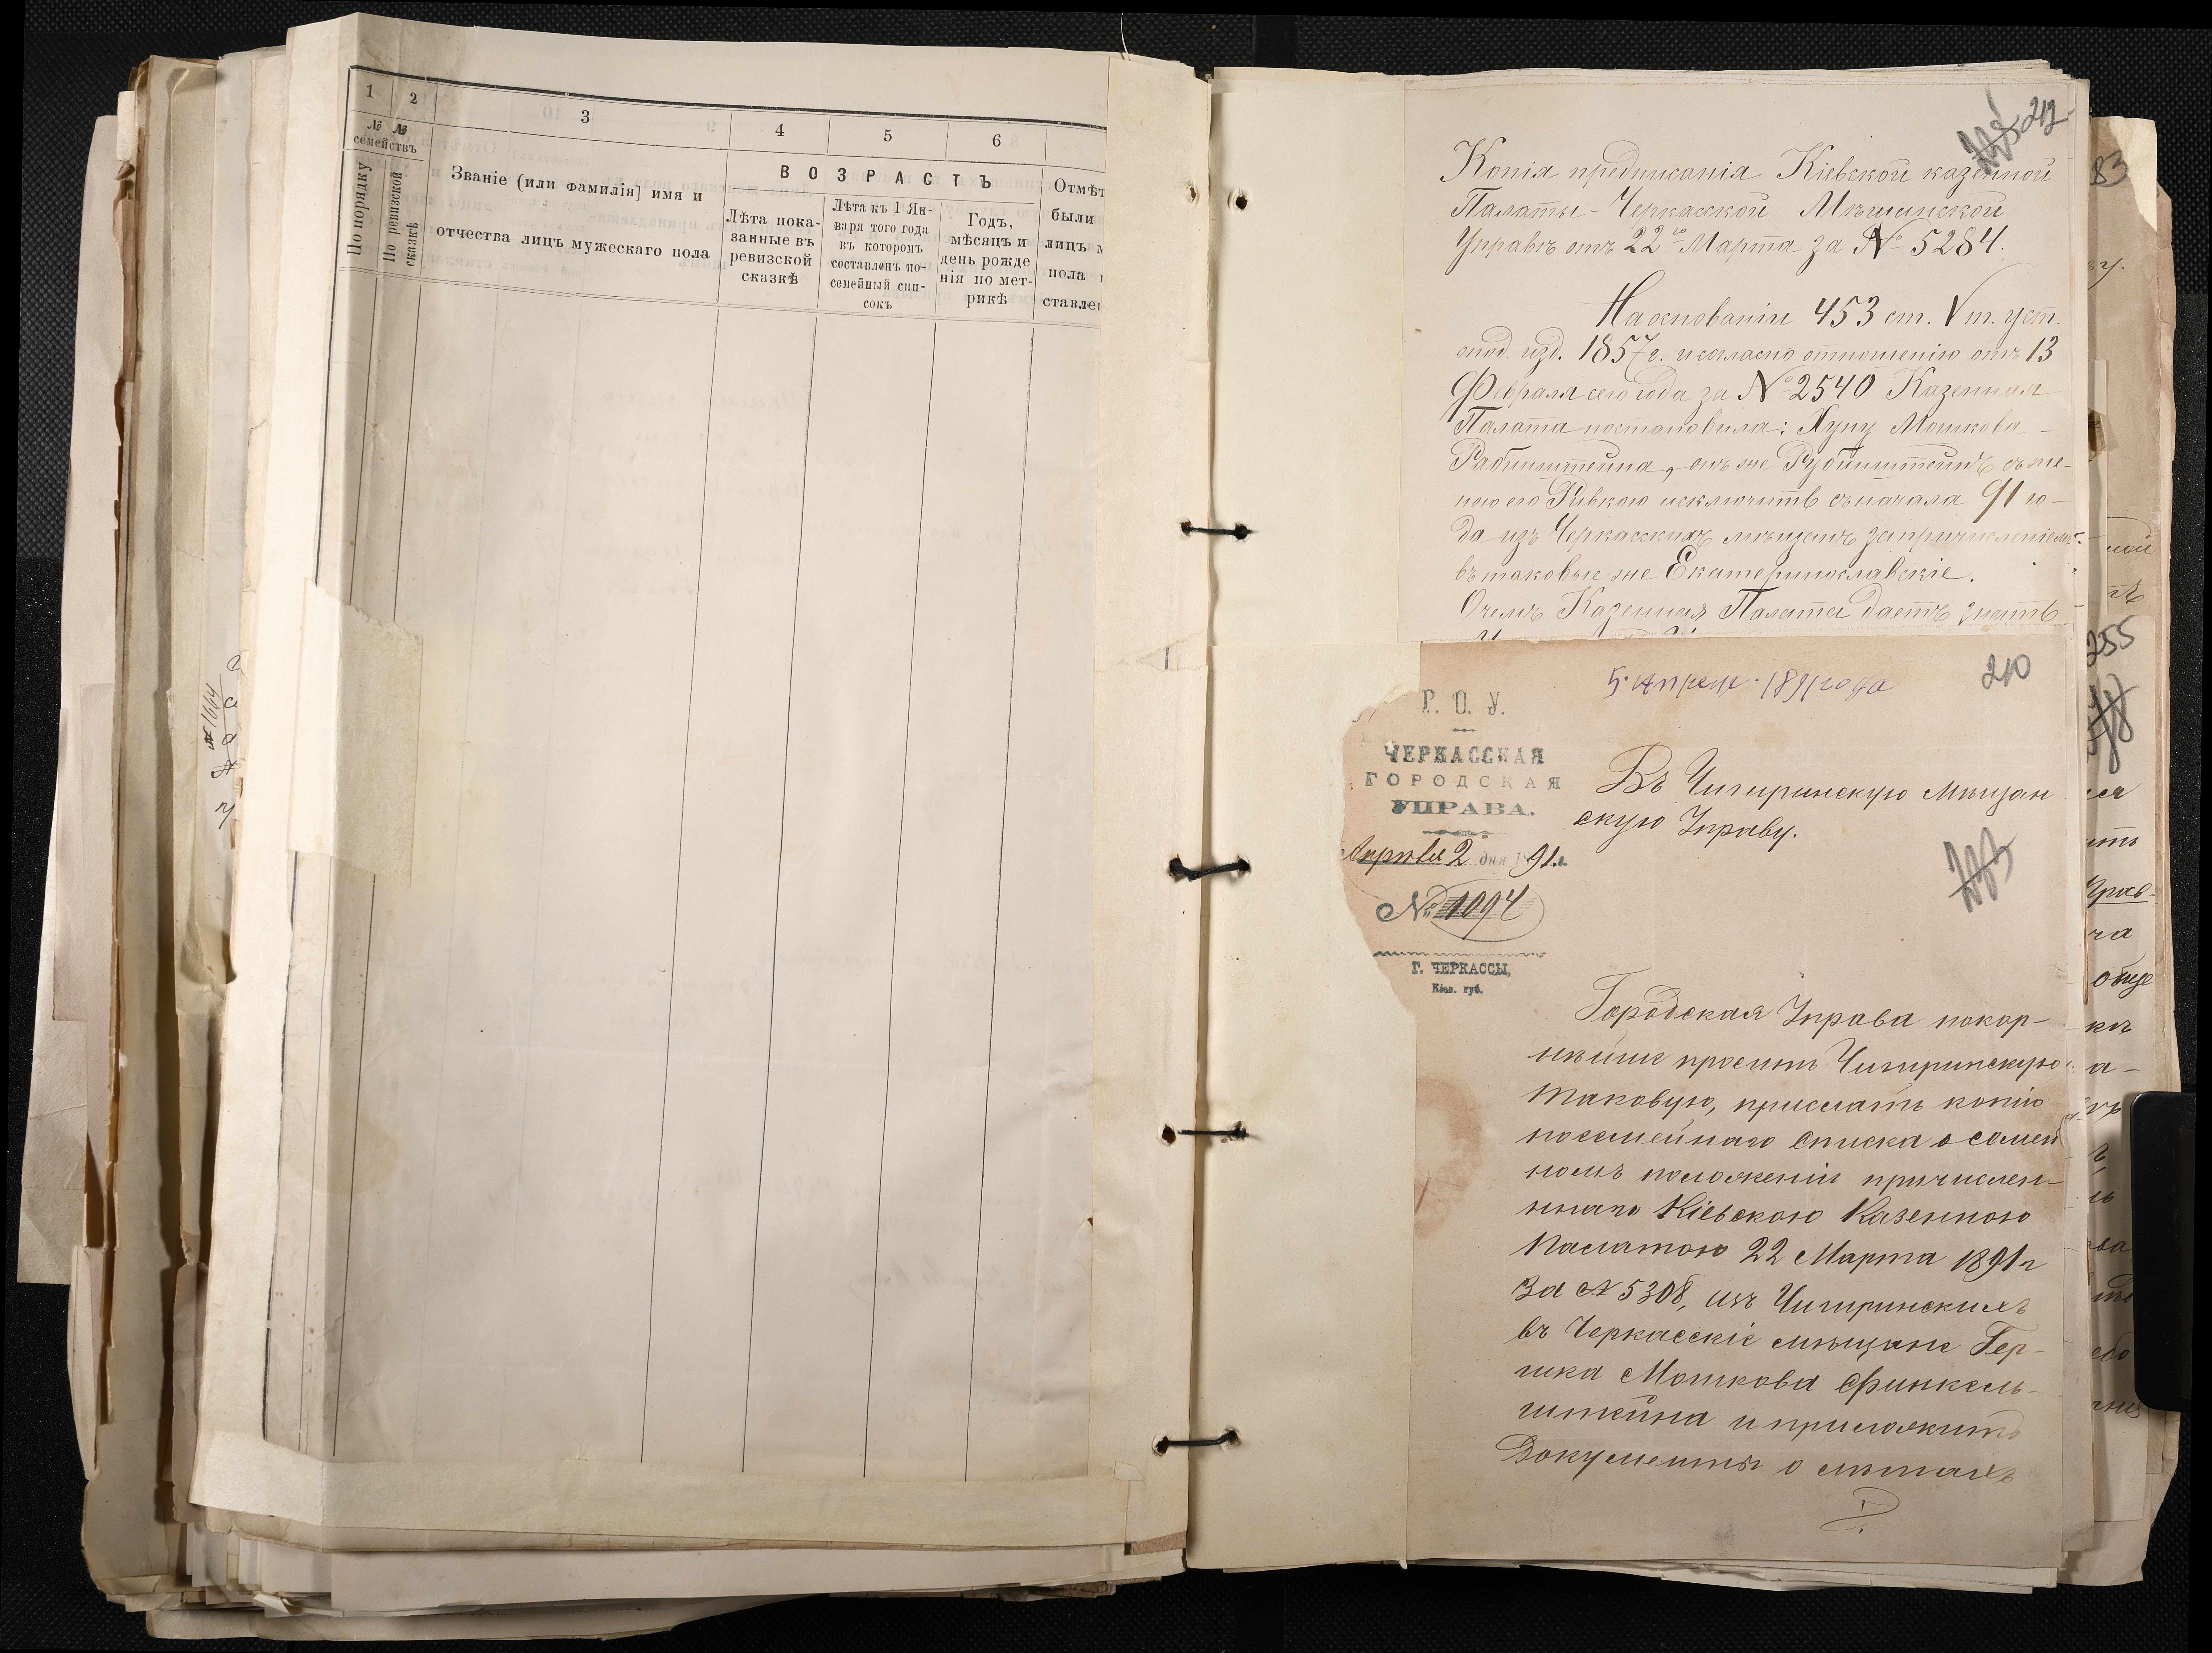 1 2 3 4 5 6
№ № семействъ
По порядку
По ревизской сказкѣ
Званіе (или фамилія] имя и
отчества лицъ мужескаго пола
ВОЗРАСТЪ
Лѣта пока-
занные въ
ревизской
сказкѣ
Лѣта къ 1 Ян-
варя того года
въ которомъ
составленъ по-
семейный спи-
сокъ
Годъ,
мѣсяцъ и
день рожде
нія по мет-
рикѣ
Отмѣт
были
лицъ м
пола
ставлен
212
Копія предписанія Кіевской казенной
Палаты - Черкасской Мѣщанской
Управѣ отъ 22го Марта за № 5284.
На основаніи 453 ст. V т. уст.
под. изд. 1857 г. и согласно отношенію отъ 13
Февраля сего года за № 2540 Казенная
Палата постановила: Хуну Мошкова
Рабинштейна, онъ же Рубинштейнъ съ же-
ною его Ривкою исключить съ начала 91 го-
да изъ Черкасскихъ мѣщанъ за причисленіемъ
въ таковые же Екатеринославскіе.
О чемъ Казенная Палата даетъ знать
5 Апреля 1891 года
210
Г. О. У.
ЧЕРКАССКАЯ
ГОРОДСКАЯ
УПРАВА.
Апрѣля 2 дня 1891 г.
№ 1094
Г. ЧЕРКАССЫ,
Кіев. губ.
Въ Чигиринскую Мѣщан
скую Управу.
Городская Управа покор-
нѣйше проситъ Чигиринскую
таковую, прислать копію
посемейнаго списка о семей
номъ положеніи причислен-
ннаго Кіевскою Казенною
Палатою 22 Марта 1891 г
за № 5308, изъ Чигиринскихъ
въ Черкасскіе мѣщане Гер-
шка Мошкова Финкель-
штейна и приложить
документы о лѣтахъ
83
255